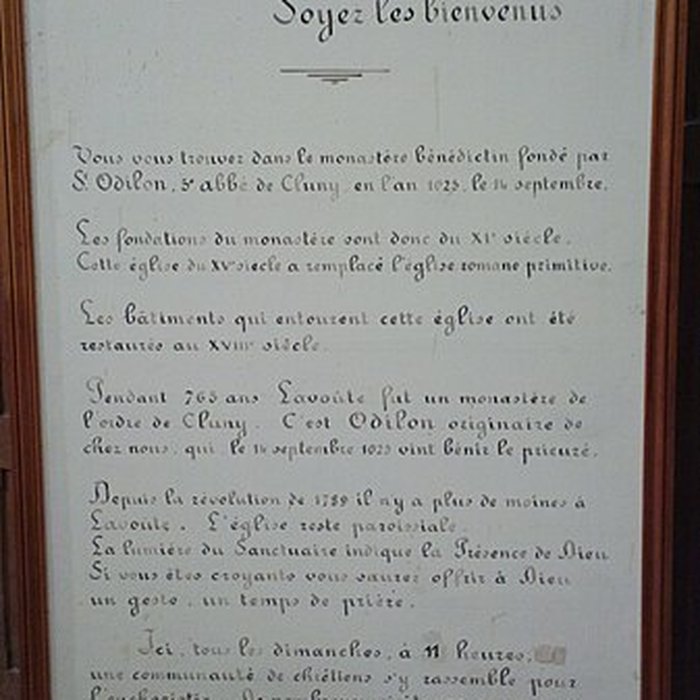 Soyez les bienvenus
Vous vous trouvez dans le monastère bénédictin fondé par
St Odilon, 5e abbé de Cluny en l'an 1025, le 14 septembre.
Les fondations du monastère sont donc du XIe siècle.
Cette église du XVe siècle a remplacé l'église romane primitive.
Les bâtiments qui entourent cette église ont été
restaurés au XVIIIe siècle.
Pendant 765 ans Lavoûte fut un monastère de
l'ordre de Cluny. C'est Odilon originaire de
chez nous, qui, le 14 septembre 1025 vint bénir le prieuré.
Depuis la révolution de 1789 il n'y a plus de moines à
Lavoute. L'église reste paroissiale.
La lumière du Sanctuaire indique la Présence de Dieu
Si vous êtes croyants vous saurez offrir à Dieu
un geste, un temps de prière.
Ici, tous les dimanches, à 11 heures,
une communauté de chrétiens s'y rassemble pour
l'eucharistie. De nombreux